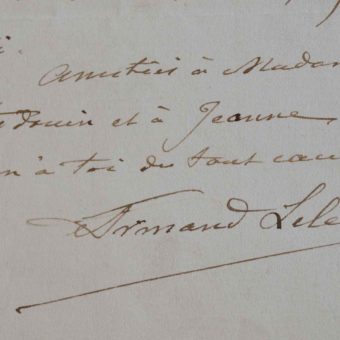 i.
Amitiés à Madam
douin et à Jeanne
n à toi de tout cœu
Armand Lele